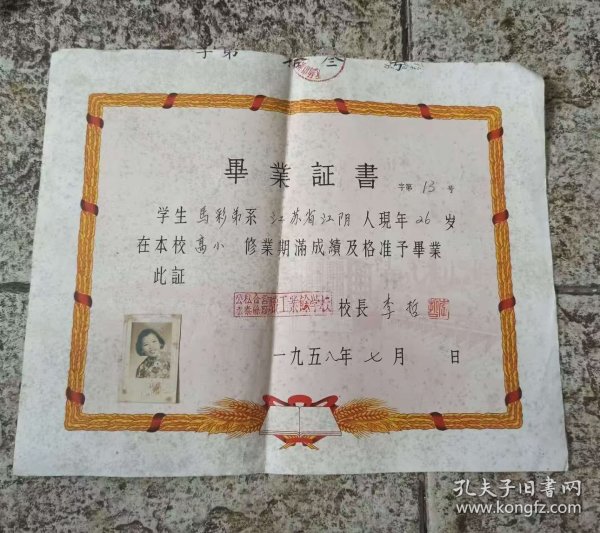 字第
畢業証書
字第 13 号
学生馬彩弟系江苏省江阴人現年26岁
在本校高小修業期滿成績及格准予畢業
此証
公私合营
職工業餘学校
校長 李哲
一九五八年七月 日
孔夫子旧书网
www.kongfz.com